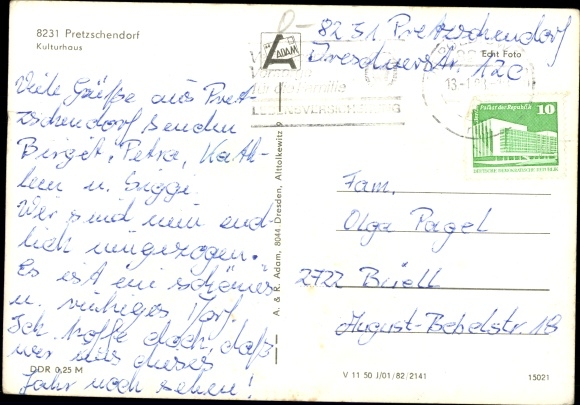 8231 Pretzschendorf
Kulturhaus
8231 Pretzschendorf
Dresdnerstr. 12c
ADAM
Echt Foto
für die Familie
LEBENSVERSICHERUNG
Palast der Republik 10
DEUTSCHE DEMOKRATISCHE REPUBLIK
Viele Grüße aus Pret-
zschendorf senden
Birget, Petra, Kath-
leen u. Siggi.
Wir sind nun end-
lich umgezogen.
Es ist ein schönes
u. ruhiges Dorf.
Ich hoffe doch, daß
wir uns dieses
Jahr noch sehen!
Fam.
Olga Pagel
2722 Brüel
August-Bebelstr. 18
A. & R. Adam, 8044 Dresden, Altlolkewitz 9
DDR 0,25 M
V 11 50 J/01/82/2141
15021